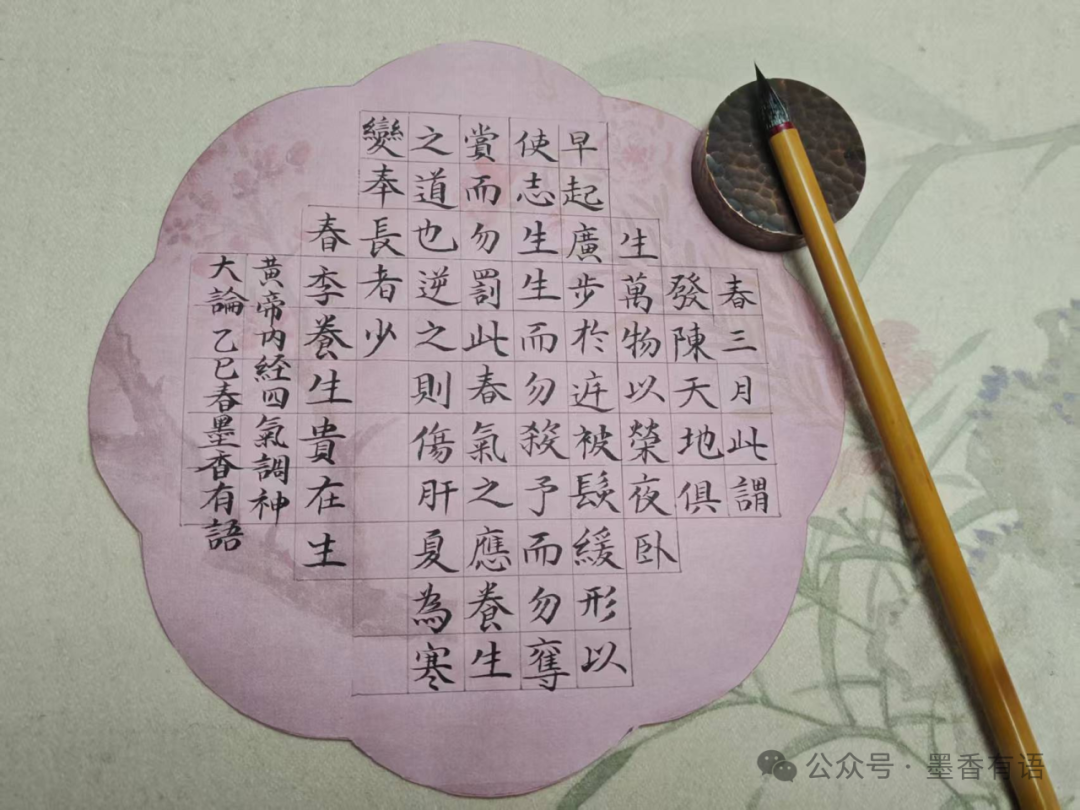 春三月此謂
發陳天地俱
生萬物以榮夜卧
早起廣步於庭被髮緩形以
使志生生而勿殺予而勿奪
賞而勿罰此春氣之應養生
之道也逆之則傷肝夏為寒
變奉長者少
春季養生貴在生
黃帝内経四氣調神
大論乙巳春墨香有語
公众号·墨香有语